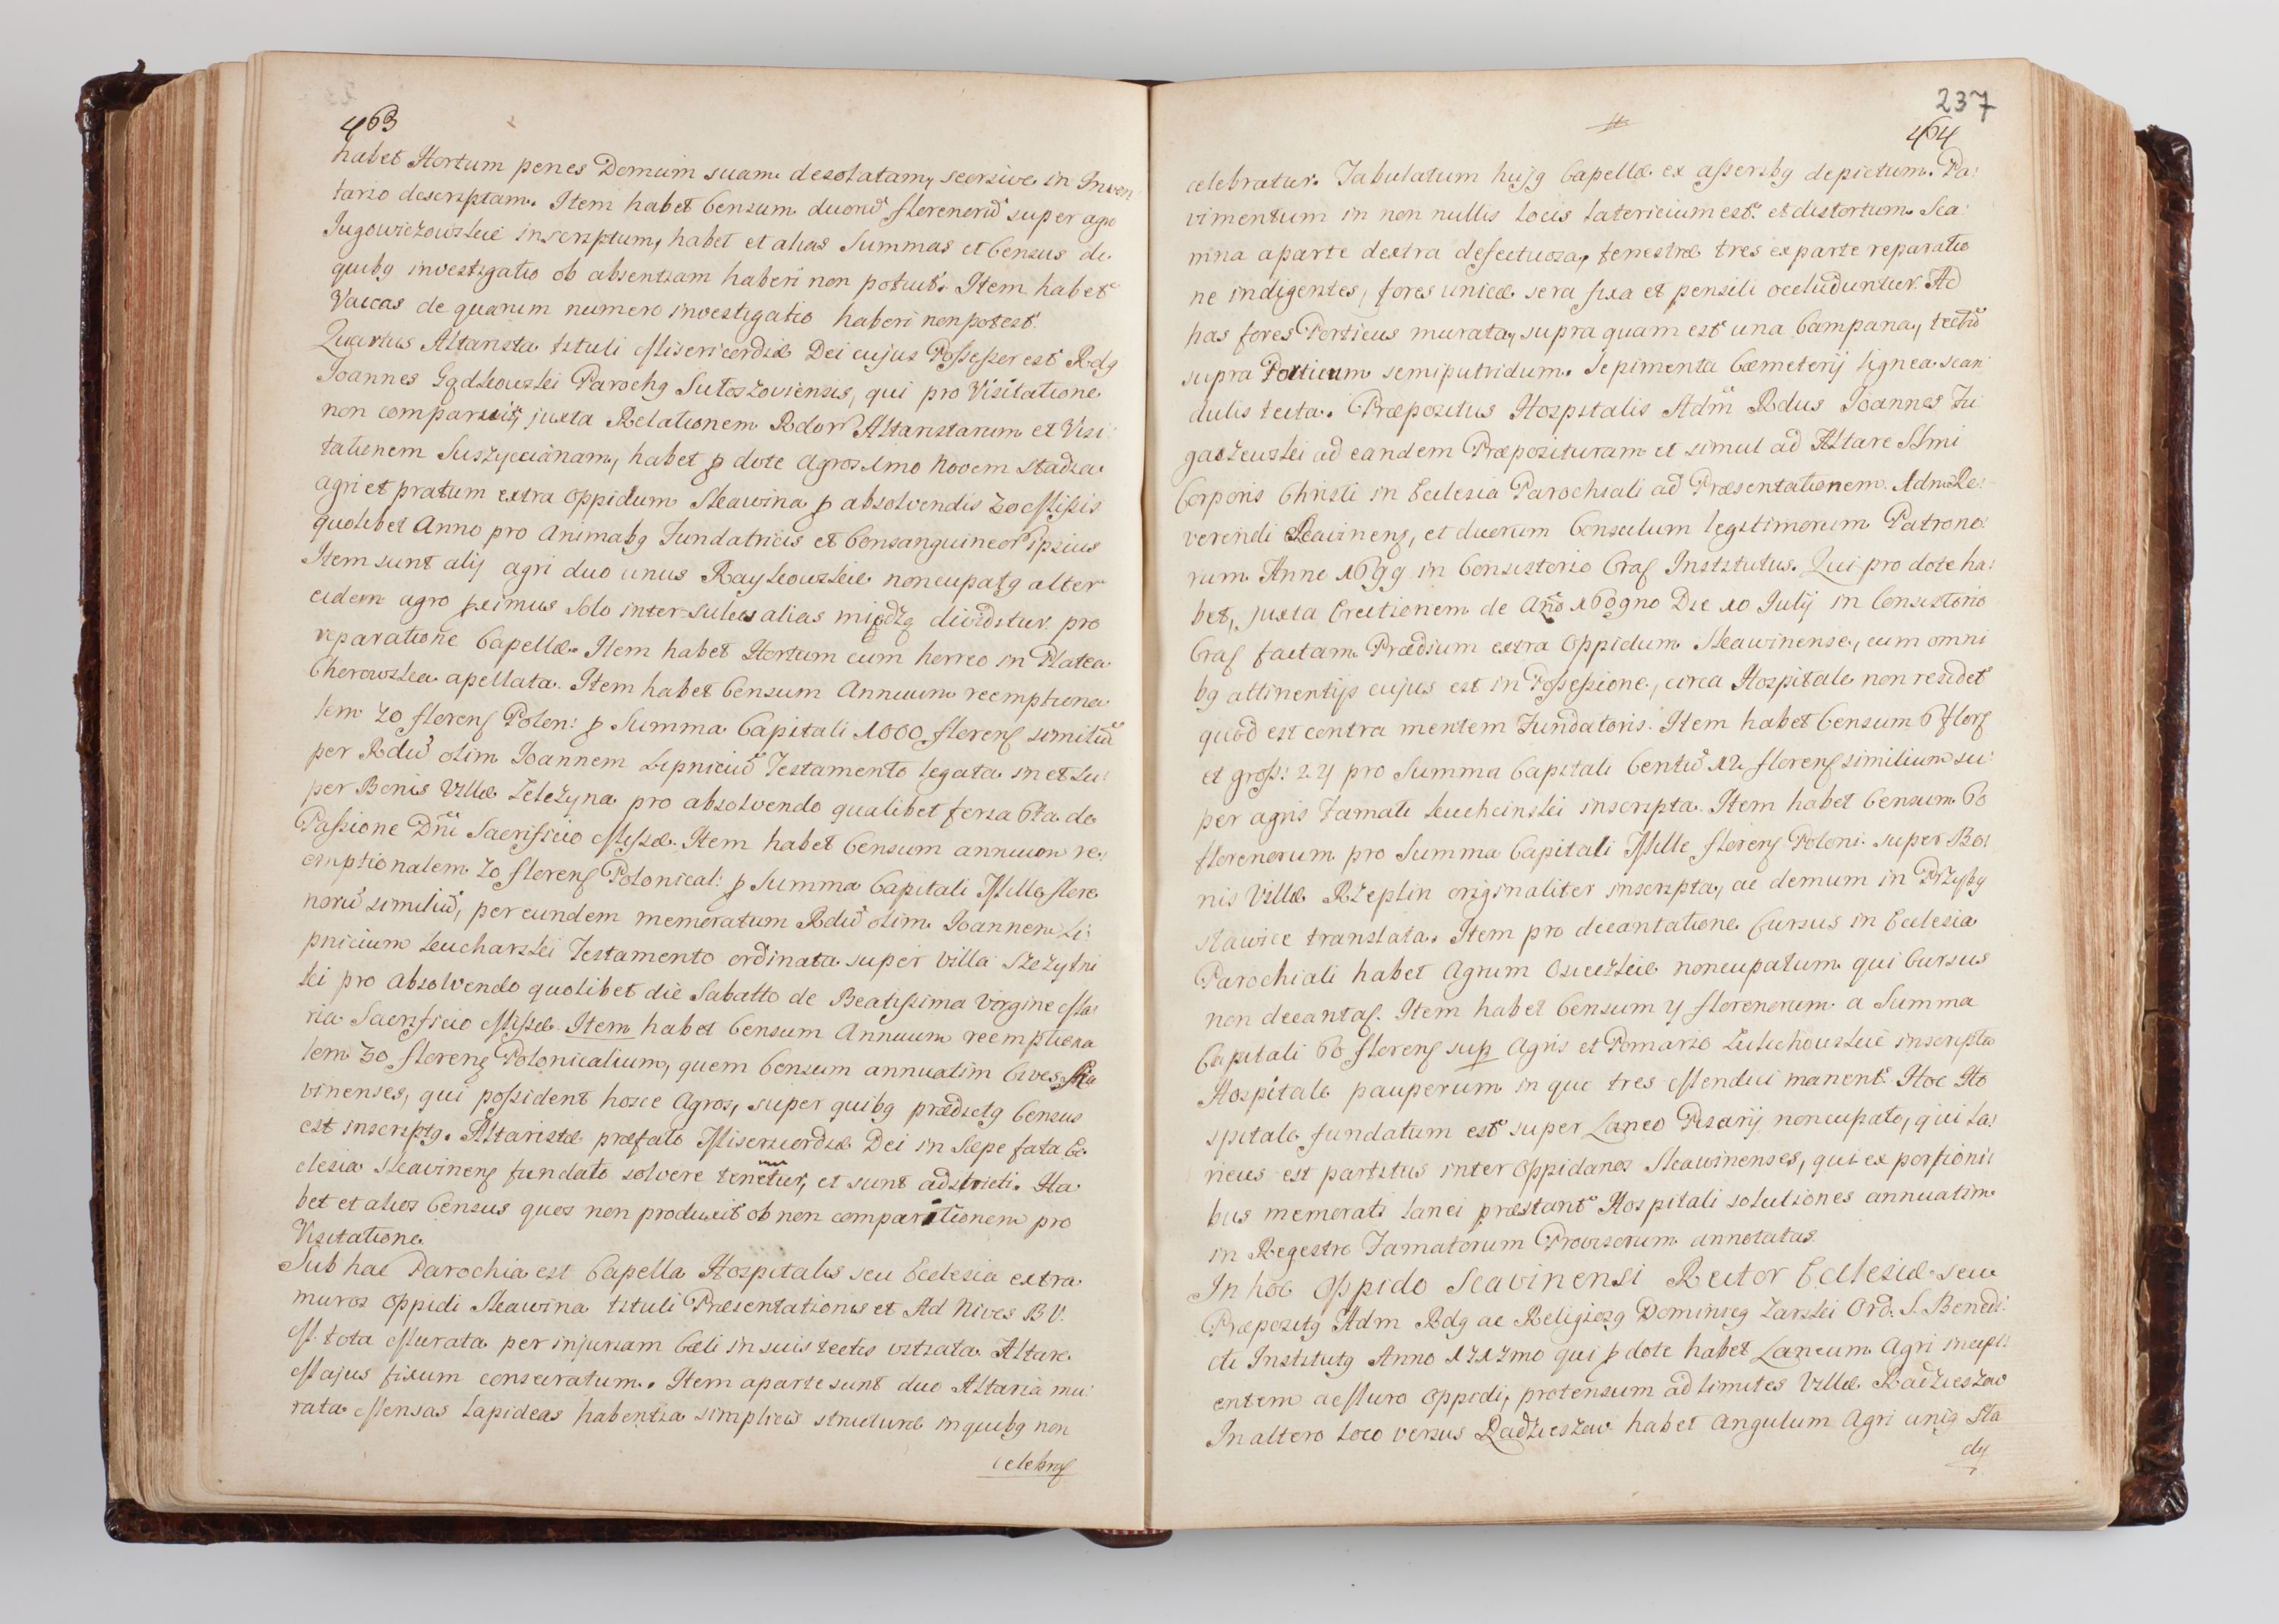 463
habet Hortum penes Domum suam desolatam, seorsive in Inven
tario descriptam. Item habet Censum duorũ florenorũ super agro
Jugowiczowskie inscriptum, habet et alias Summas et Census de
quibg investigatio ob absentiam haberi non potuit. Item habet
Vaccas de quarum numero investigatio haberi non potest.
Quartus Altarista tituli Misericordiæ Dei cujus Possessor est Rdg
Joannes Parochg Sułoszoviensis, qui pro Visitatione
non comparuit, juxta Relationem Rdor Altaristarum et Visi:
tationem habet p dote Agros 1mo Novem Stadia
agri et pratum extra Oppidum Skawina p absolvendis 30 Missis
quolibet Anno pro Animabg Fundatricis et Consanguineor ipsius
Item sunt alij agri duo unus Raykowskie noncupatg alter
eidem agro pximus Solo inter sulcos alias miedzą dividitur pro
reparatione Capellæ. Item habet Hortum cum horreo in Platea
Chorowska apellata. Item habet Censum Annuum reemptiona
lem 30 floren Polon: p Summa Capitali 1000 floren similiũ
per Rdũ olim Joannem Lipniciũ Testamento legata in et Su:
per Bonis Villæ Zelezyna pro absolvendo qualibet feria 6ta de
Passione Dni Sacrificio Missæ. Item habet Censum annuum re:
emptionalem 30 floren Polonical: p Summa Capitali Mille flore
norũ similiũ, per eundem memoratum Rdũ olim Joannem Li:
pnicium Kucharski Testamento ordinata super villa Szczytni
ki pro absolvendo quolibet die Sabatto de Beatissima Virgine Ma:
ria Sacrificio Missæ. Item habet Censum Annuum reemptiona
lem 30 floren Polonicalium, quem Censum annuatim Cives Ska
vinenses, qui possident hosce Agros, super quibg prædictg Census
est inscriptg. Altaristæ præfato Misericordiæ Dei in Sæpe fata Ec
clesia Skavinen fundato solvere tenetur, et sunt adstricti. Ha
bet et alios Census quos non produxit ob non comparitionem pro
Visitatione.
Sub hac Parochia est Capella Hospitalis seu Ecclesia extra
muros Oppidi Skawina tituli Præsentationis et Ad Nives B V.
M. tota Murata per injuriam Cæli in suis tectis vitiata. Altare
Majus fixum consecratum. Item aparte sunt duo Altaria mu:
rata Mensas Lapideas habentia simplicis structuræ in quibg non
celebr
237
464
celebratur. Tabulatum hujg Capellæ ex asseribg depictum. Pa:
vimentum in non nullis locis latericium est. et distortum. Sca:
mna aparte dextra defectuosa, fenestræ tres ex parte reparatio
ne indigentes, fores unicæ sera fixa et pensili occluduntur. Ad
has fores Porticus murata, supra quam est una Campana, tectũ
supra Porticum semiputridum. Sepimenta Cæmeterij lignea scan:
dulis tecta. Præpositus Hospitalis Adm Rdus Joannes
ad eandem Præposituram et simul ad Altare SSmi
Corporis Christi in Ecclesia Parochiali ad Præsentationem Adm Re:
verendi Skavinen, et duorum Consulum legitimorum Patrono:
rum Anno 1699 in Consistorio Crac Institutus. Qui pro dote ha:
bet, juxta Erectionem de Ano Die 10 Julij in Consistorio
Crac factam. Prædium extra Oppidum Skawinense, cum omni
bg attinentijs cujus est in Possessione, circa Hospitale non residet
quod est contra mentem Fundatoris. Item habet Censum 6 flor
et gross: 24 pro Summa Capitali Centũ 12 floren similium su:
per agris Famati inscripta. Item habet Censum 60
florenorum pro Summa Capitali Mille floren Poloni: super Bo:
nis Villæ Rzeplin originaliter inscripta, ac demum in Przyby
sławice translata. Item pro decantatione Cursus in Ecclesia
Parochiali habet Agrum noncupatum qui Cursus
non decantat. Item habet Censum 4 florenorum a Summa
Capitali 60 floren sup Agris et Pomario inscripta
Hospitale pauperum in quo tres Mendici manent. Hoc Ho
spitale fundatum est super Laneo Pisarij noncupato, qui La:
neus est partitus inter Oppidanos Skawinenses, qui ex portioni:
bus memorati lanei præstant Hospitali solutiones annuatim
in Regestro Famatorum Provisorum annotatas.
In hoc Oppido Scavinensi Rector Ecclesiæ seu
Præpositg Adm Rdg ac Religiosg Dominicg Żarski Ord. S. Benedi:
cti Institutg Anno 1717mo qui p dote habet Laneum Agri incipi:
entem a Muro Oppidi, protensum ad limites Villæ Radzieszow
In altero loco versus Radzieszow habet angulum Agri unig Sta
dij